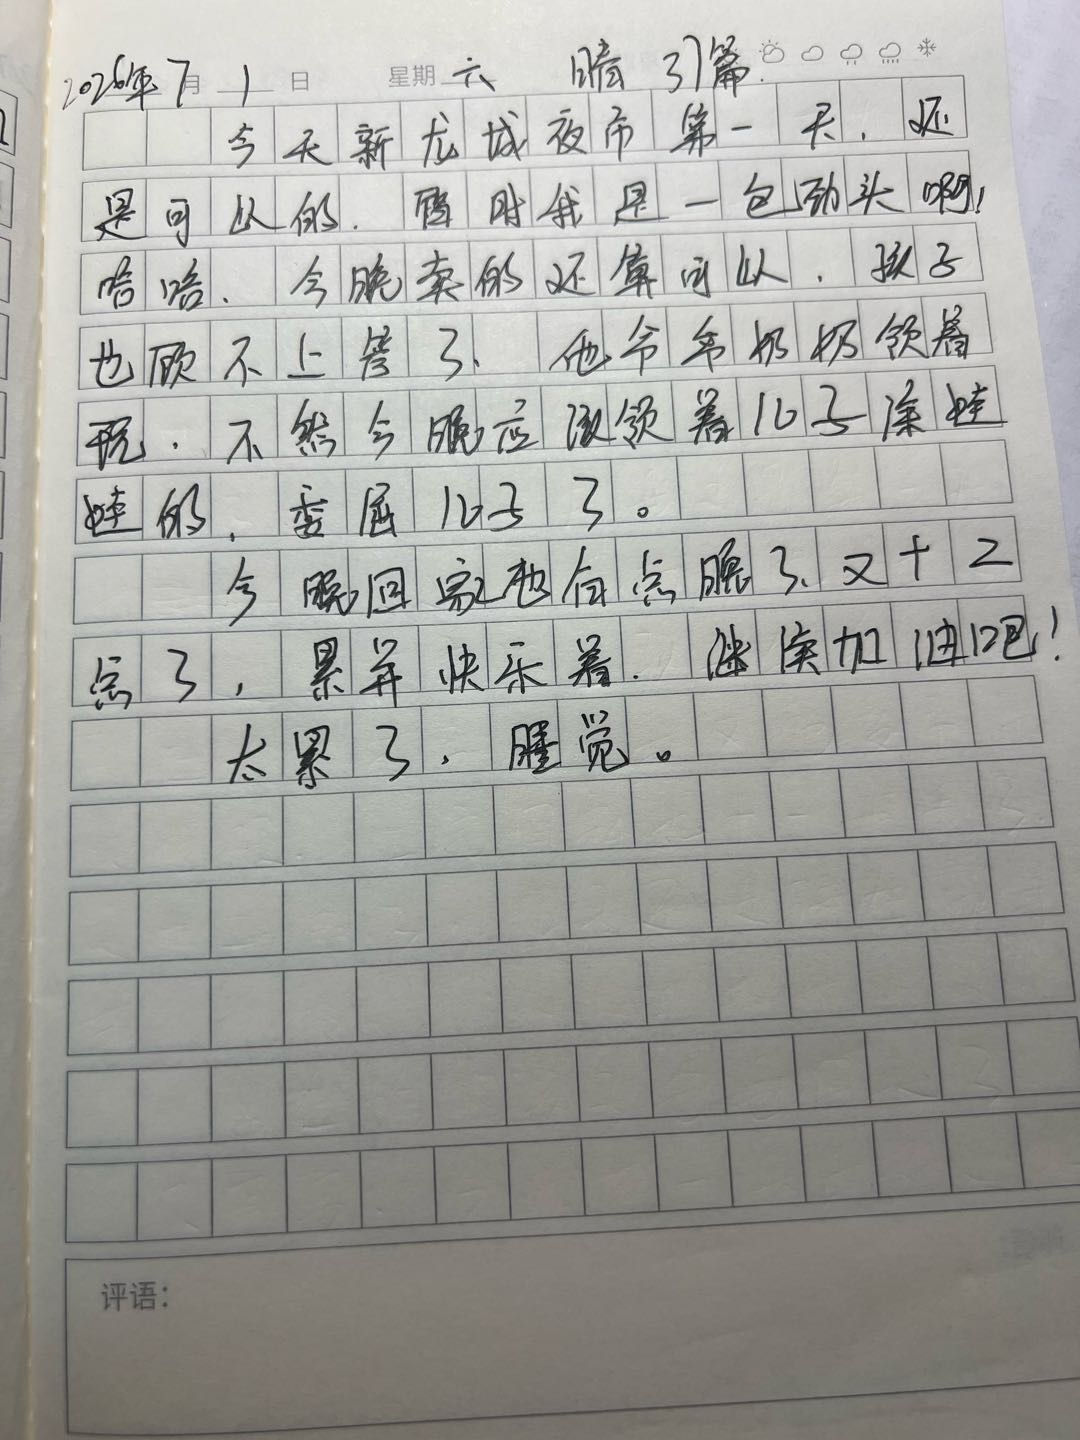 2026年7月1日 星期六 晴 37篇.
今天新龙城夜市第一天,还
是可以的.随时我是一包劲头啊!
哈哈.今晚卖的还算可以.孩子
也顾不上管了、他爷爷奶奶领着
玩.不然今晚应该领着儿子深蛙
蛙的,委屈儿子了。
今晚回家也有点晚了、又十二
点了,累并快乐着.继续加油吧!
太累了.睡觉。
评语: